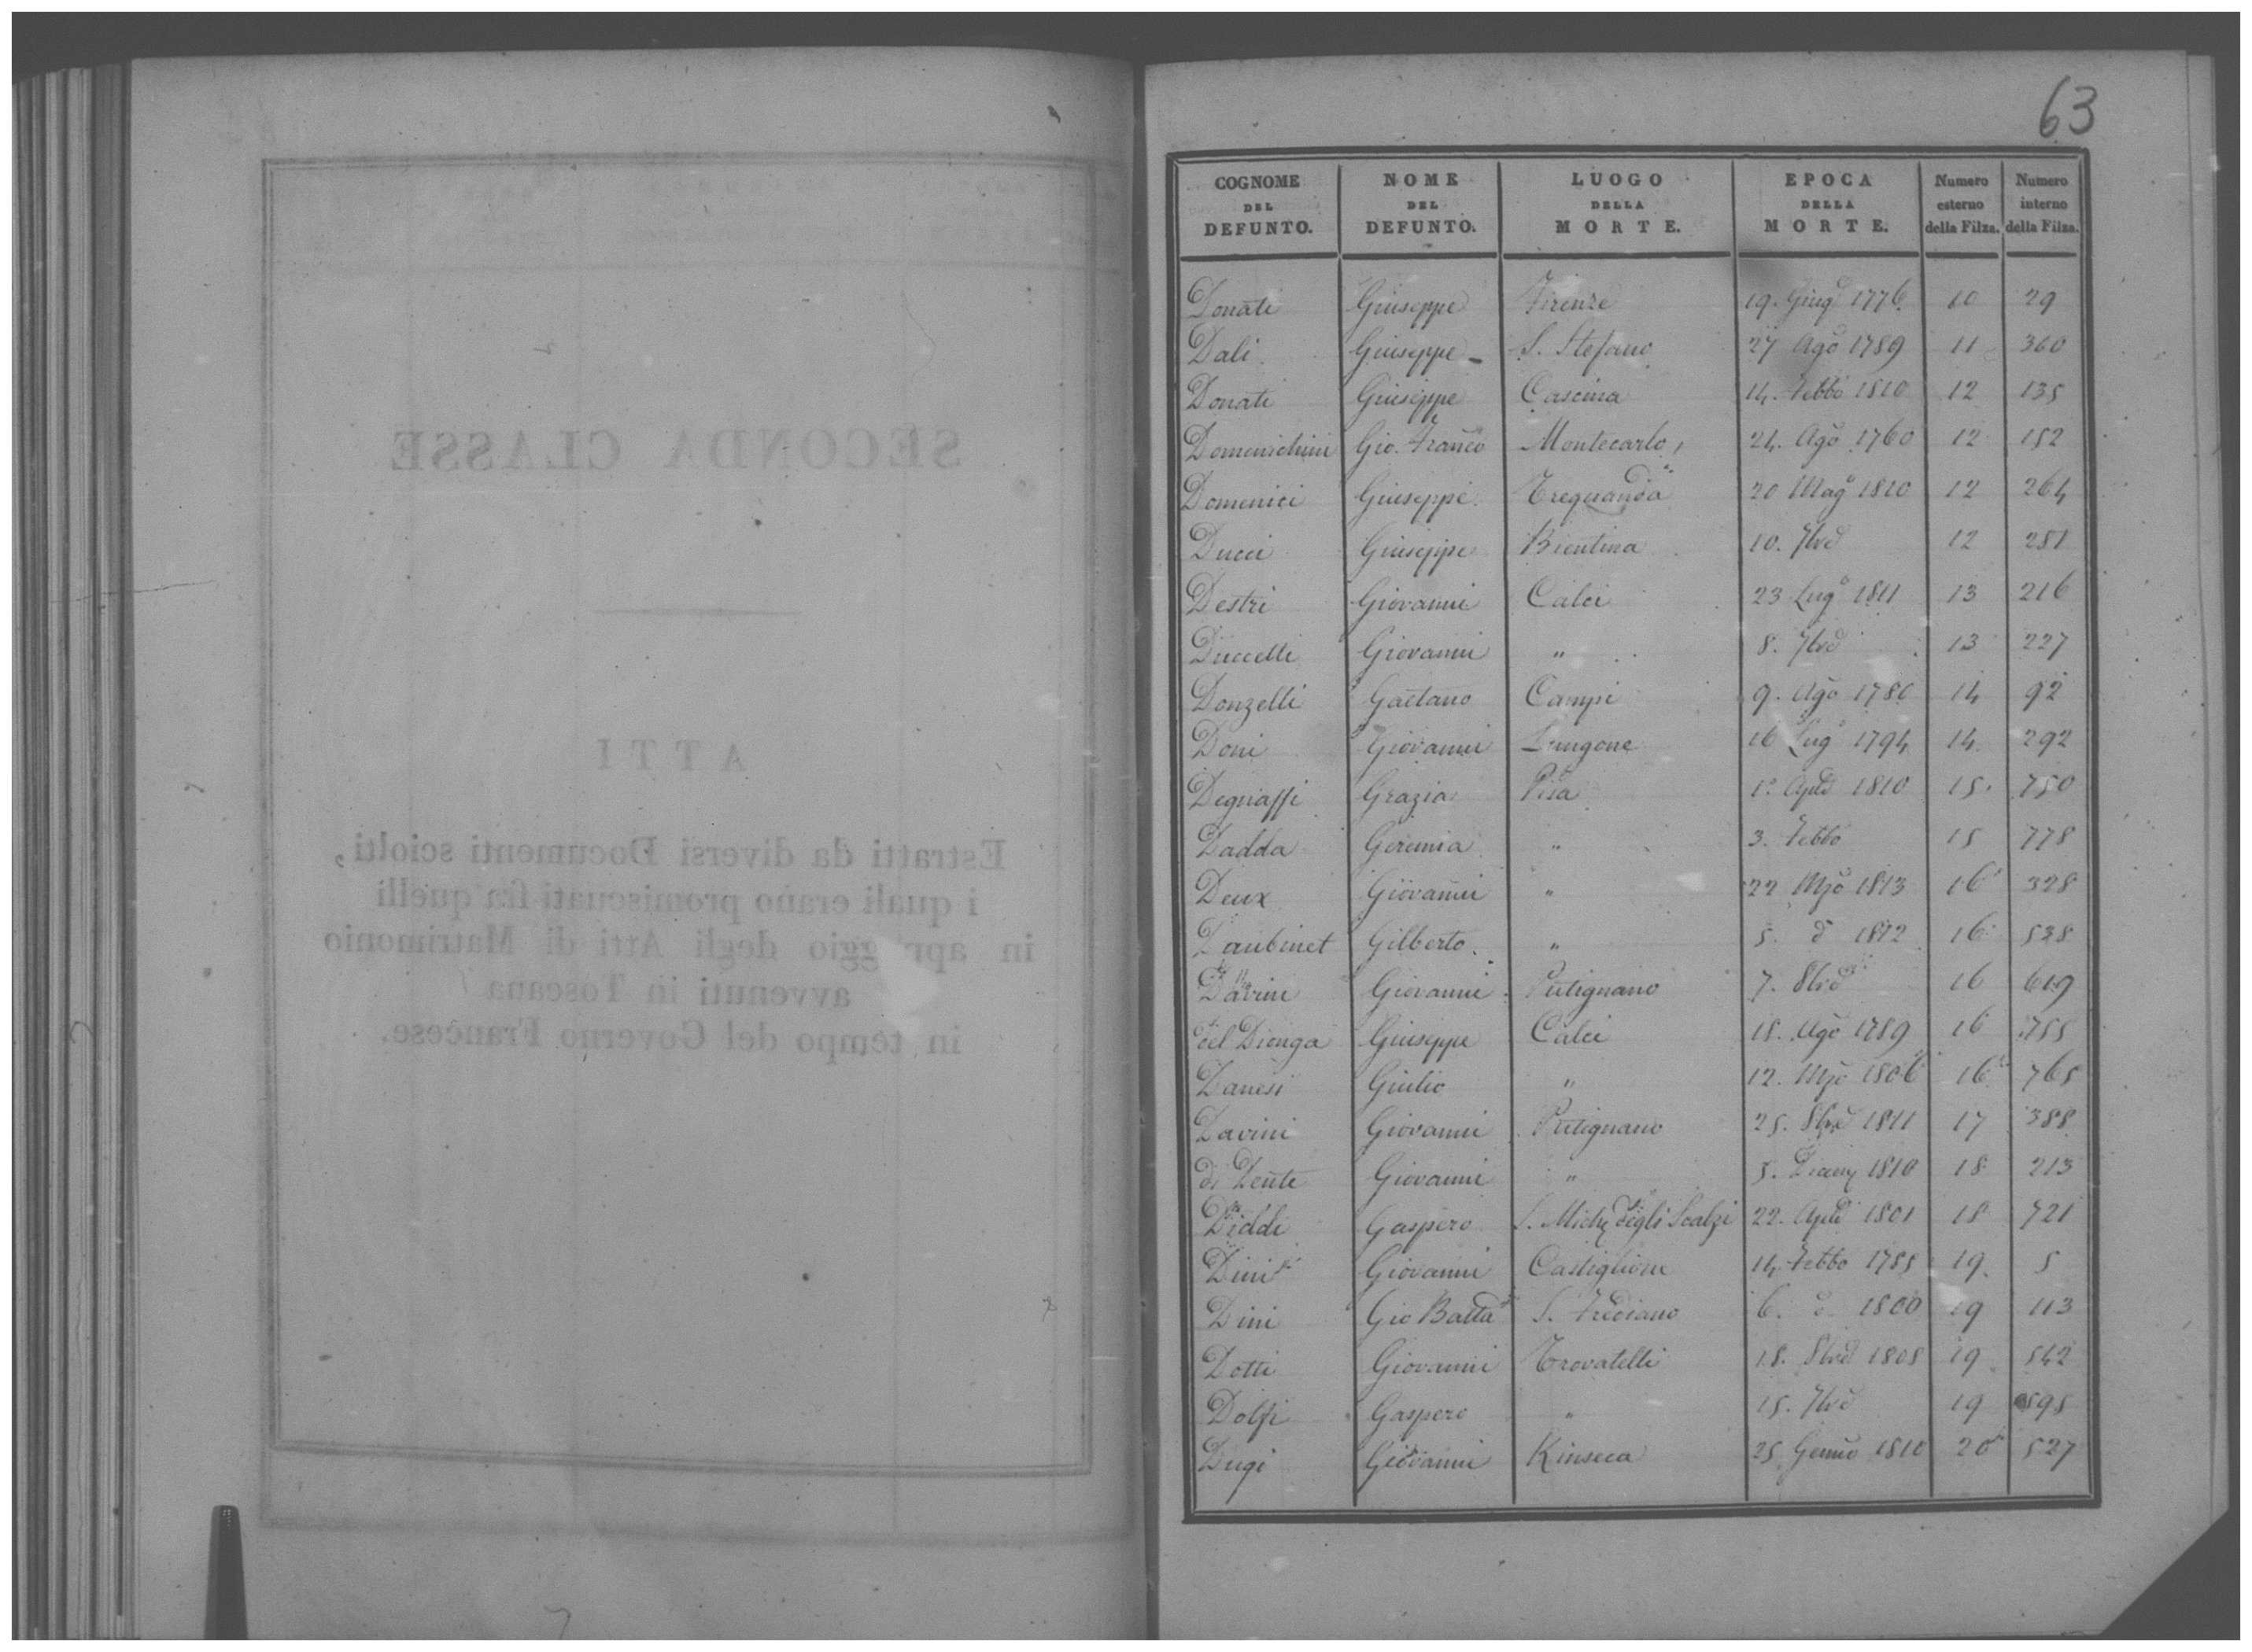 SECONDA CLASSE
ATTI
Estratti da diversi Documenti sciolti,
i quali erano promiscuati fra quelli
in appoggio degli Atti di Matrimonio
avvenuti in Toscana
in tempo del Governo Francese.
63
COGNOME DEL DEFUNTO. NOME DEL DEFUNTO. LUOGO DELLA MORTE. EPOCA DELLA MORTE. Numero esterno della Filza. Numero interno della Filza.
Donati Giuseppe Firenze 19. Giug° 1776. 10 29
Dali Giuseppe S. Stefano 27 Ago 1789 11 360
Donati Giuseppe Cascina 14. Febbo 1810 12 135
Domenichini Gio. Franco Montecarlo 24. Ago 1760 12 152
Domenici Giuseppe Trequanda 20 Mag° 1810 12 264
Ducci Giuseppe Bientina 10. 7bre 12 281
Destri Giovanni Calci 23 Lug° 1811 13 216
Duccelli Giovanni " 8. 7bre 13 227
Donzelli Gaetano Campi 9. Ago 1780 14 92
Doni Giovanni Longone 16 Lug° 1794 14 292
Grazia Pisa 1° Aple 1810 15. 750
Dadda Geremia " 3. Febbo 15 778
Deux Giovanni " 22 Mzo 1813 16 328
Daubinet Gilberto " 5. d° 1812 16 538
Davini Giovanni Putignano 7. 8bre 16 619
del Dionga Giuseppe Calci 18. Ago 1789 16 755
Danesi Giulio " 12. Mzo 1806 16 765
Davini Giovanni Putignano 25. 8bre 1811 17 388
di Dente Giovanni " 5. 1810 18 213
Diddi Gaspero S. Miche degli Scalzi 22. Aple 1801 18 721
Dini Giovanni Castiglione 14 Febbo 1785 19. 5
Dini Gio Batta S. Frediano 6. d° 1800 19 113
Dotti Giovanni Trovatelli 18. 8bre 1805 19 542
Dolfi Gaspero " 15. 7bre 19 595
Dugi Giovanni Kinseca 25 Genno 1810 20 527